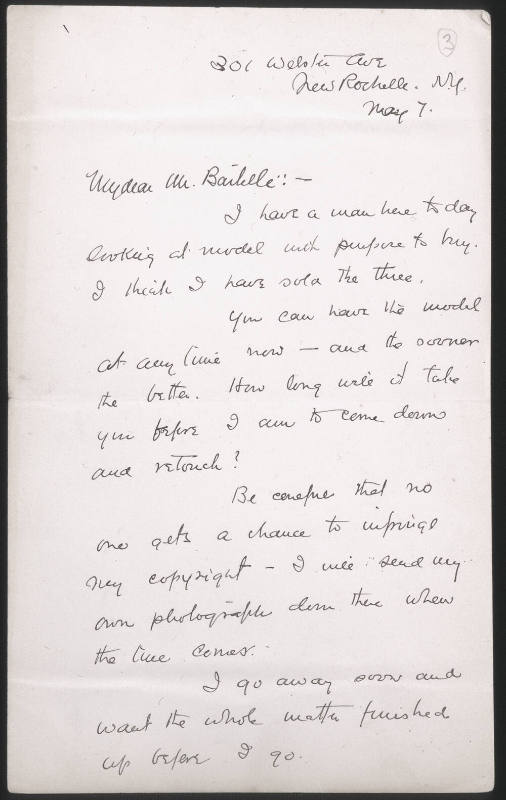 3
301 Webster Ave
New Rochelle. N.Y.
May 7.
My dear Mr. :—
I have a man here to day
looking at model with purpose to buy.
I think I have sold the three.
You can have the model
at any time now — and the sooner
the better. How long will it take
you before I am to come down
and retouch?
Be careful that no
one gets a chance to infringe
my copyright — I will send my
own photograph down there when
the time comes.
I go away soon and
want the whole matter finished
up before I go.